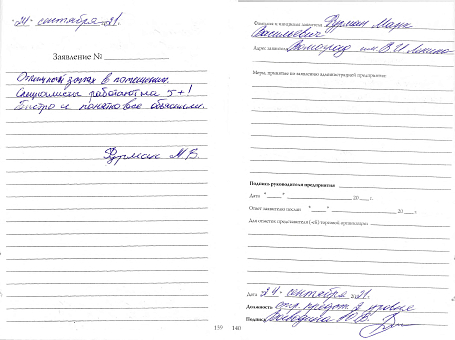 24 сентября 21.
Заявление №
Отличный запах в помещении.
Специалисты работают на 5+!
Быстро и понятно все объяснили.
Фурман М.В.
159
Фамилия и инициалы заявителя Фурман Марк
Васильевич
Адрес заявителя Волгоград им. В.И. Ленина
Меры, принятые по заявлению администрацией предприятия:
Подпись руководителя предприятия
Дата " " 20 г.
Ответ заявителю послан " " 20 г.
Для отметок представителя (-ей) торговой организации
Дата 24 сентября 2021.
Должность 2 уровня
Подпись
140